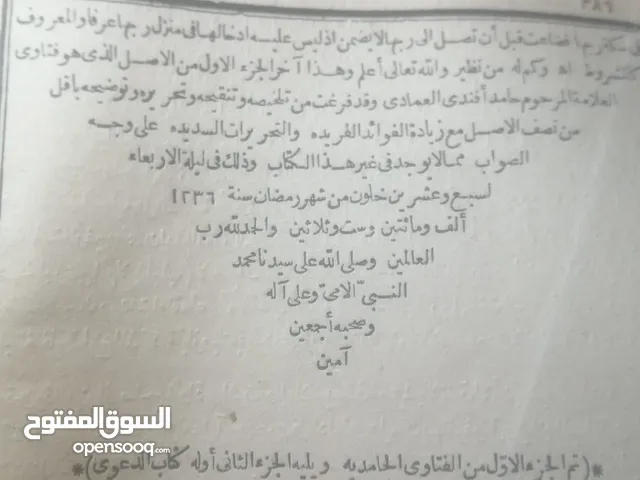 ٣٨٦
ضاعت قبل أن تصل الى ربها لا يضمن اذ ليس عليه ادخالها فى منزل ربها عرفا والمعروف
كالمشروط اه وكم له من نظير والله تعالى أعلم وهذا آخر الجزء الاول من الاصل الذى هو فتاوى
العلامة المرحوم حامد أفندى العمادى وقد فرغت من تلخيصه وتنقيحه وتحريره وتوضيحه باقل
من نصف الاصل مع زيادة الفوائد الفريده والتحريرات السديده على وجه
الصواب مما لا يوجد فى غير هذا الكتاب وذلك فى ليلة الاربعاء
لسبع وعشرين خلون من شهر رمضان سنة ١٢٣٦
ألف ومائتين وست وثلاثين والحمد لله رب
العالمين وصلى الله على سيدنا محمد
النبىّ الامىّ وعلى آله
وصحبه أجمعين
آمين
السوق المفتوح
opensooq.com
*(تم الجزء الاوّل من الفتاوى الحامديه ويليه الجزء الثانى أوله كتاب الدعوى)*